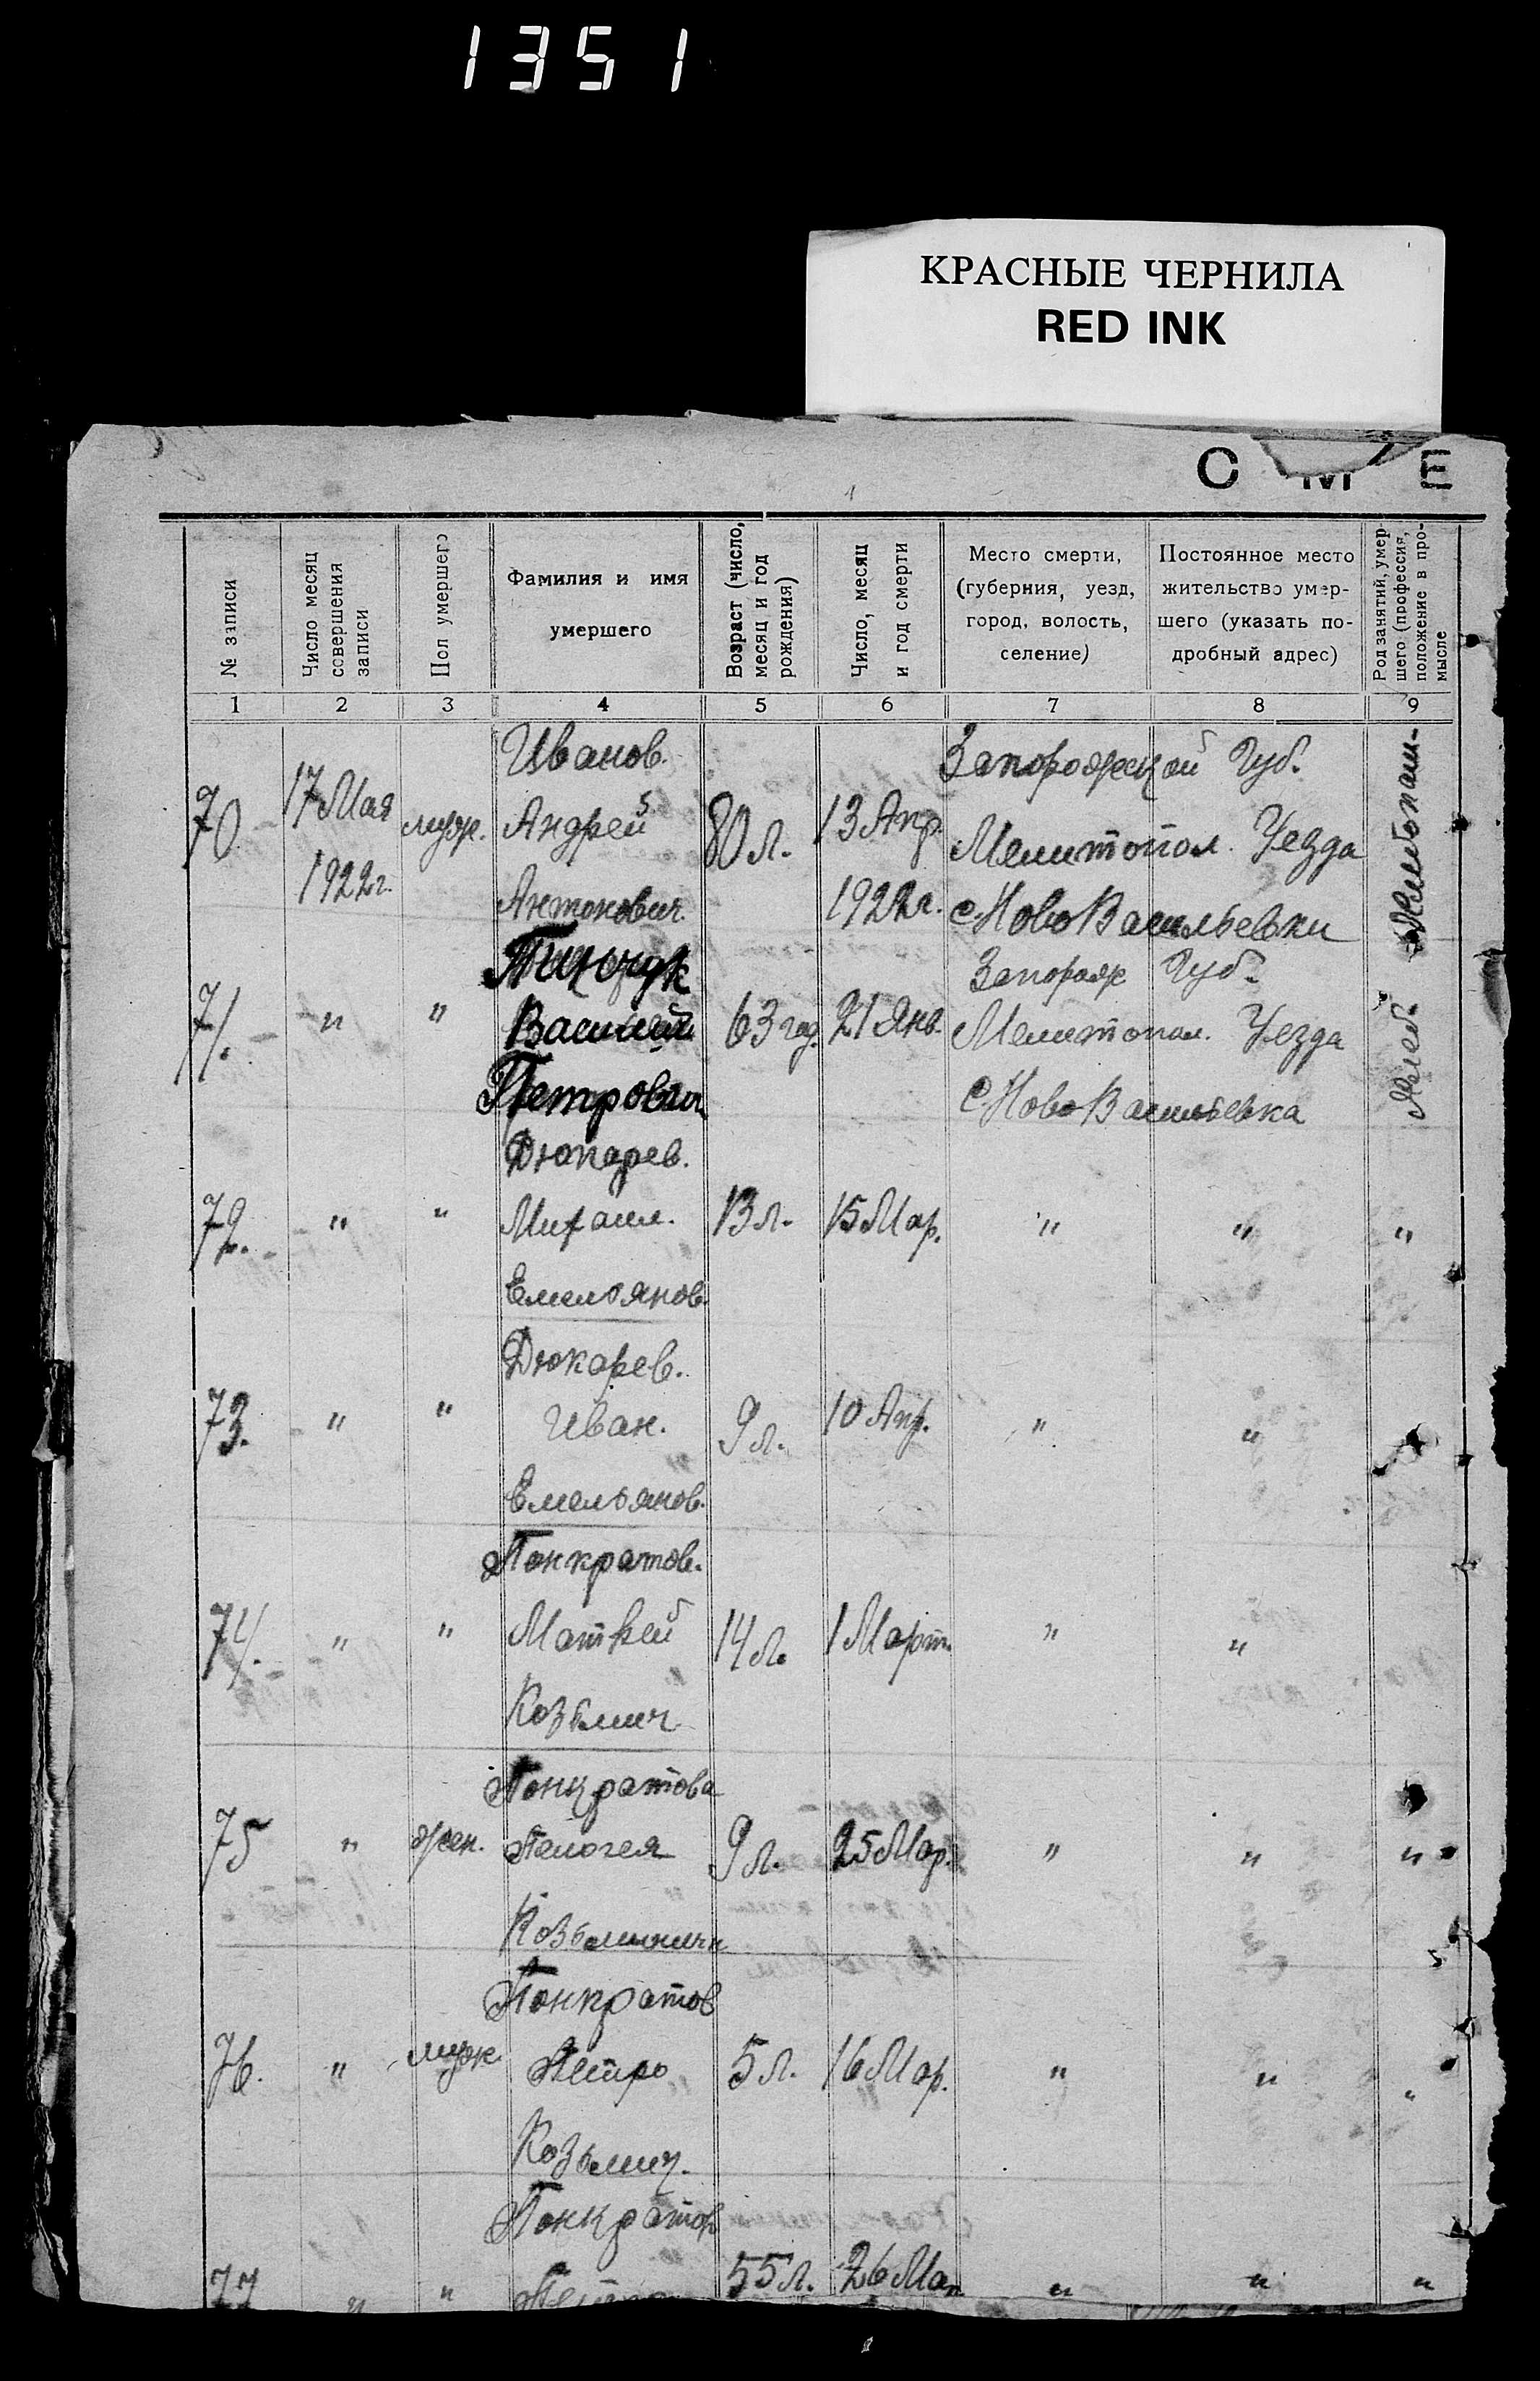 1351
КРАСНЫЕ ЧЕРНИЛА
RED INK
С М Е
№ записи
Число месяц совершения записи
Пол умершего
Фамилия и имя умершего
Возраст (число, месяц и год рождения)
Число, месяц и год смерти
Место смерти, (губерния, уезд, город, волость, селение)
Постоянное место жительство умершего (указать подробный адрес)
Род занятий, умершего (профессия, положение в промысле
1 2 3 4 5 6 7 8 9
Иванов. Запорожской Губ.
70 17 Мая муж. Андрей 80 л. 13 Апр. Мелитопол. Уезда
1922 г. Антонович. 1922 г. с. Ново Васильевки
Запорож Губ.
71. " " Василий 63 год. 21 Янв. Мелитопол. Уезда Хлеб.
Петрович С Ново Васильевка
Дюкарев.
72. " " Михаил. 13 л. 15 Мар. " " "
Емельянов.
Дюкарев.
73. " " Иван. 9 л. 10 Апр. " "
Емельянов.
Понкратов.
74. " " Матвей 14 л. 1 Март. " "
Козьмич
Понкратова
75 " жен. Пелогея 9 л. 25 Мар. " " "
Понкратов
76. " муж. Петро 5 л. 16 Мар. " " "
Козьмич.
Понкратов
77 " " 55 л. 26 Мар " " "